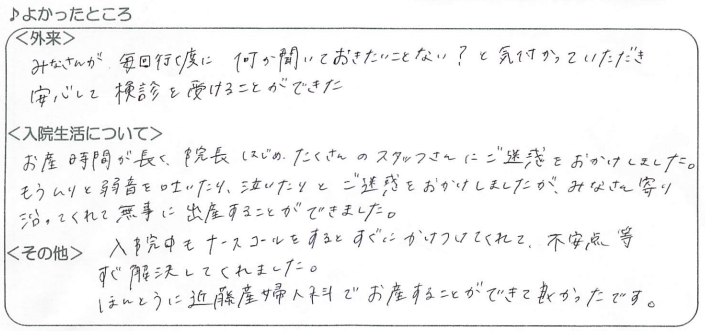 ♪よかったところ
<外来>
みなさんが 毎回行く度に 何か聞いておきたいことない？と気付かっていただき
安心して 検診を受けることができた
<入院生活について>
お産時間が長く、院長はじめ、たくさんのスタッフさんにご迷惑をおかけしました。
もうムリと弱音を吐いたり、泣いたりとご迷惑をおかけしましたが、みなさん寄り
沿ってくれて無事に出産することができました。
<その他> 入院中もナースコールをするとすぐにかけつけてくれて、不安点等
すぐ解決してくれました。
ほんとうに近藤産婦人科でお産することができて良かったです。